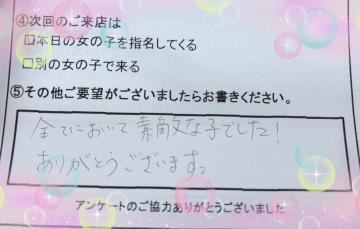 ④次回のご来店は
□本日の女の子を指名してくる
□別の女の子で来る
⑤その他ご要望がございましたらお書きください。
全てにおいて素敵な子でした！
ありがとうございます。
アンケートのご協力ありがとうございました